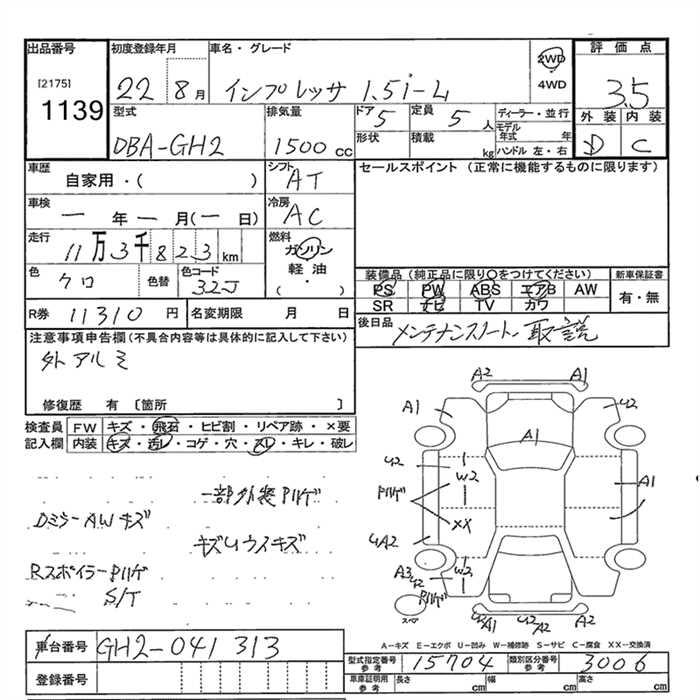 出品番号 初度登録年月 車名・グレード 評価点
[2175]
1139
22 8月 インプレッサ 1.5i-L 2WD 3.5
4WD
外装 内装
D C
型式 排気量 ドア 定員 ディーラー・並行
DBA-GH2 1500cc 5 5人 モデル年式 年
形状 積載 kg ハンドル 左・右
車歴 シフト セールスポイント (正常に機能するものに限ります)
自家用・( ) AT
車検 冷房
一年一月(一日) AC
走行 燃料
11万3千823km ガソリン
軽油
( ・ )
色 色替 色コード
クロ 32J
装備品(純正品に限り○をつけてください) 新車保証書
PS PW ABS エアB AW 有・無
SR ナビ TV カワ
R券 11310円 名変期限 月 日
後日品 メンテナンスノート、取説
注意事項申告欄(不具合内容等は具体的に記入して下さい)
外アルミ
修復歴 有 [箇所 ]
検査員記入欄 FW キズ・飛石・ヒビ割・リペア跡・×要
内装 キズ・汚レ・コゲ・穴・スレ・キレ・破レ
一部外装Pハゲ
DミラーAWキズ
キズUウスキズ
RスポイラーPハゲ
S/T
A2 A1
A1 U2
A1
U2 W2 A1
Pハゲ
XX
UA2
A3 U2 W2
Pハゲ
スペア
U2 A1 U2 A2 A1
A-キズ E-エクボ U-凹み W-補修跡 S-サビ C-腐食 XX-交換済
車台番号 GH2-041313
型式指定番号参考 15704 類別区分番号参考 3006
登録番号
車庫証明用参考 長さ cm 幅 cm 高さ cm